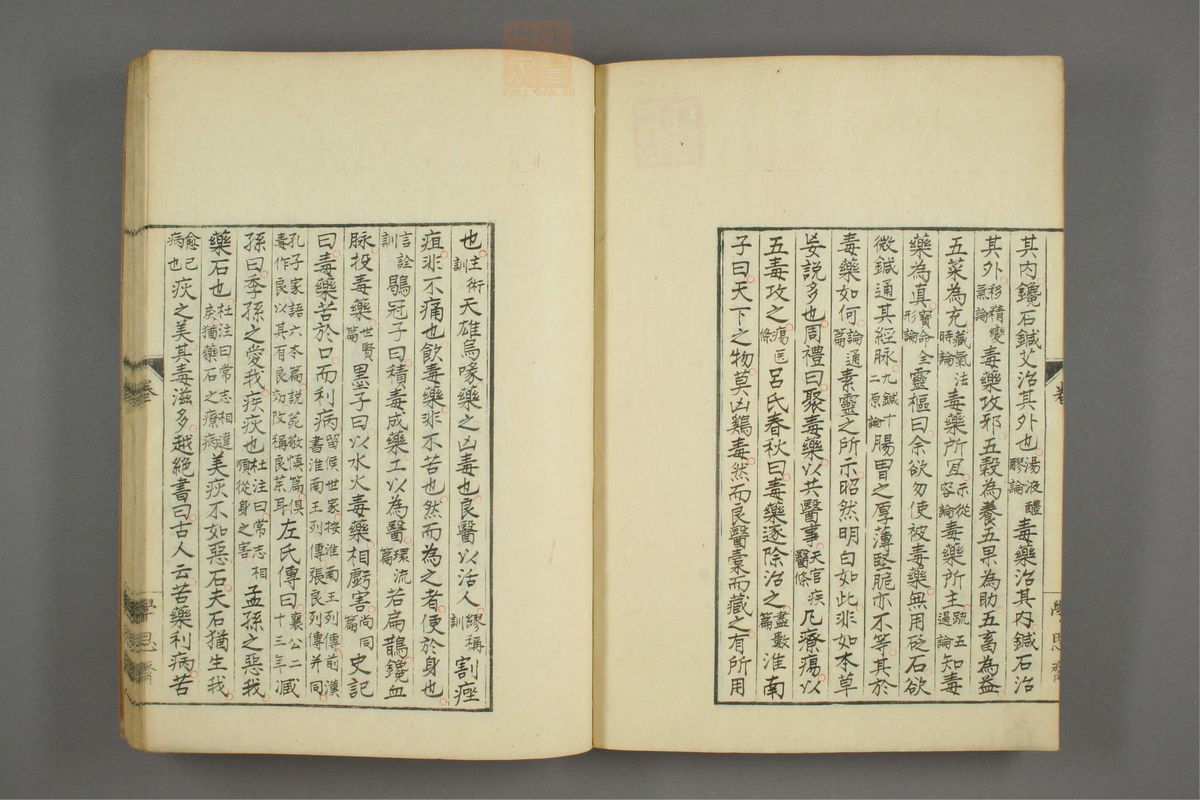 其內鑱石鍼艾治其外也湯液醪醴論毒藥治其內鍼石治
其外移精變氣論毒藥攻邪五穀為養五果為助五畜為益
五菜為充藏氣法時論毒藥所宜示從容論毒藥所主疏五過論知毒
藥為真寶命全形論靈樞曰余欲勿使被毒藥無用砭石欲
微鍼通其經脉九鍼十二原論腸胃之厚薄堅脆亦不等其於
毒藥如何論通篇素靈之所示昭然明白如此非如本草
妄說多也周禮曰聚毒藥以共醫事天官疾醫條凡療瘍以
五毒攻之瘍醫條呂氏春秋曰毒藥逐除治之盡數篇淮南
子曰天下之物莫凶鷄毒然而良醫橐而藏之有所用
也主術訓天雄烏喙藥之凶毒也良醫以活人繆稱訓割痤
疽非不痛也飲毒藥非不苦也然而為之者便於身也
詮言訓鶡冠子曰積毒成藥工以為醫環流篇若扁鵲鑱血
脉投毒藥世賢篇墨子曰以水火毒藥相虧害尚同篇史記
曰毒藥苦於口而利病留侯世家按淮南王列傳前漢書淮南王列傳張良列傳并同
孔子家語六本篇說苑敬慎篇俱毒作良以其有良効改稱良藥耳左氏傳曰襄公二十三年臧
孫曰季孫之愛我疾疢也杜注曰常志相順從身之害孟孫之惡我
藥石也杜注曰常志相違戾猶藥石之療病美疢不如惡石夫石猶生我
愈已病也疢之美其毒滋多越絕書曰古人云苦藥利病苦
學思齋